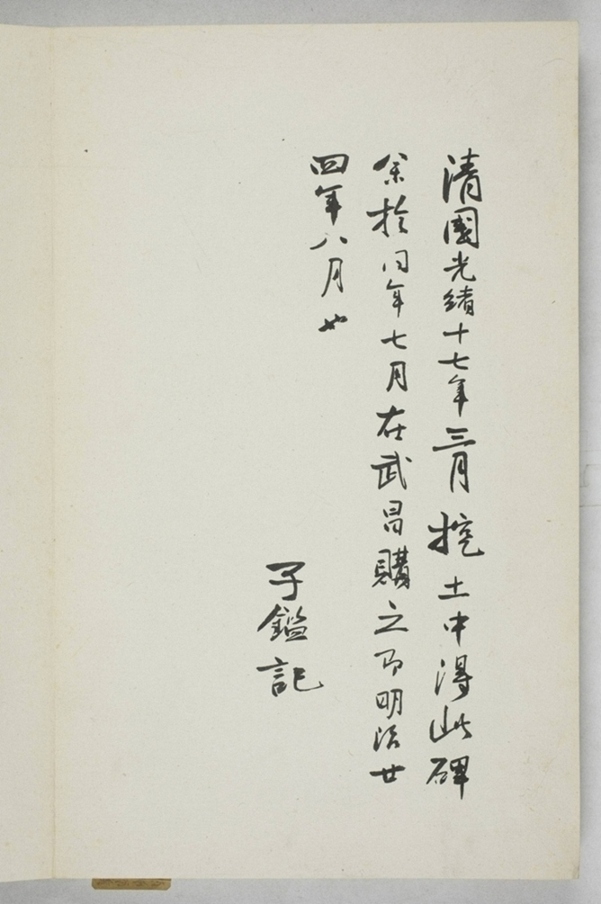 清國光緒十七年三月挖土中得此碑
余於同年七月在武昌購之即明治廿
四年八月也
子鑑記